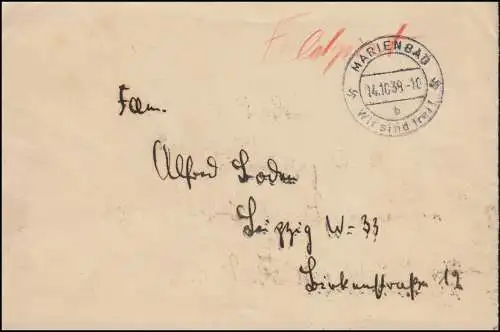 Feldpost
MARIENBAD
14.10.38.-10
b
Wir sind frei!
Fam.
Alfred Boden
Leipzig W-33
Birkenstraße 12